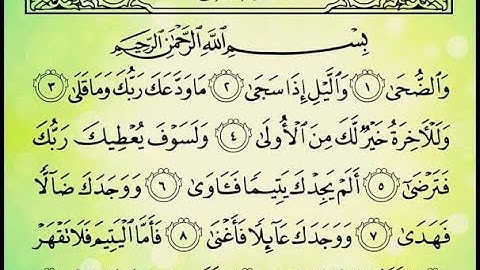 بِسْمِ ٱللَّهِ ٱلرَّحْمَٰنِ ٱلرَّحِيمِ
وَٱلضُّحَىٰ ١ وَٱلَّيْلِ إِذَا سَجَىٰ ٢ مَا وَدَّعَكَ رَبُّكَ وَمَا قَلَىٰ ٣
وَلَلْآخِرَةُ خَيْرٌ لَّكَ مِنَ ٱلْأُولَىٰ ٤ وَلَسَوْفَ يُعْطِيكَ رَبُّكَ
فَتَرْضَىٰ ٥ أَلَمْ يَجِدْكَ يَتِيمًا فَـَٔاوَىٰ ٦ وَوَجَدَكَ ضَآلًّا
فَهَدَىٰ ٧ وَوَجَدَكَ عَآئِلًا فَأَغْنَىٰ ٨ فَأَمَّا ٱلْيَتِيمَ فَلَا تَقْهَرْ